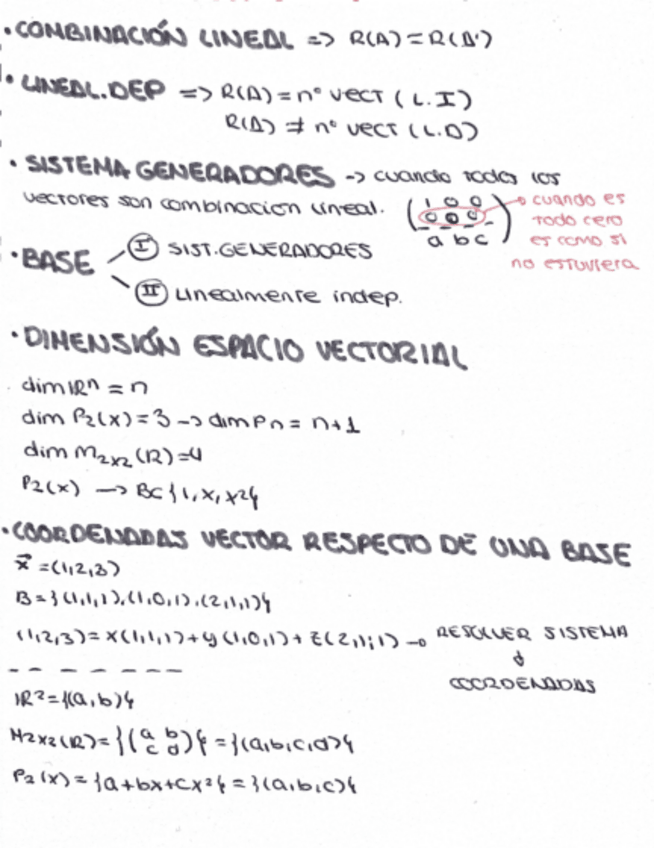 • COMBINACIÓN LINEAL => R(A) = R(A')
• LINEAL.DEP => R(A) = nº vect (L.I)
R(A) ≠ nº vect (L.D)
• SISTEMA GENERADORES -> cuando todos los
vectores son combinacion lineal. (1 0 0
0 0 0) → cuando es
todo cero
a b c
es como si
no estuviera
• BASE
I SIST.GENERADORES
II Linealmente indep.
• DIMENSIÓN ESPACIO VECTORIAL
dim ℝⁿ = n
dim P₂(x) = 3 -> dim Pn = n+1
dim M₂ₓ₂(ℝ) = 4
P₂(x) -> Bc{1, x, x²}
• COORDENADAS VECTOR RESPECTO DE UNA BASE
x⃗ = (1,2,3)
B = {(1,1,1), (1,0,1), (2,1,1)}
(1,2,3) = x(1,1,1) + y(1,0,1) + z(2,1,1) → RESOLVER SISTEMA
↓
COORDENADAS
ℝ² = {(a,b)}
M₂ₓ₂(ℝ) = {(a b
c d)} = {(a,b,c,d)}
P₂(x) = {a+bx+cx²} = {(a,b,c)}